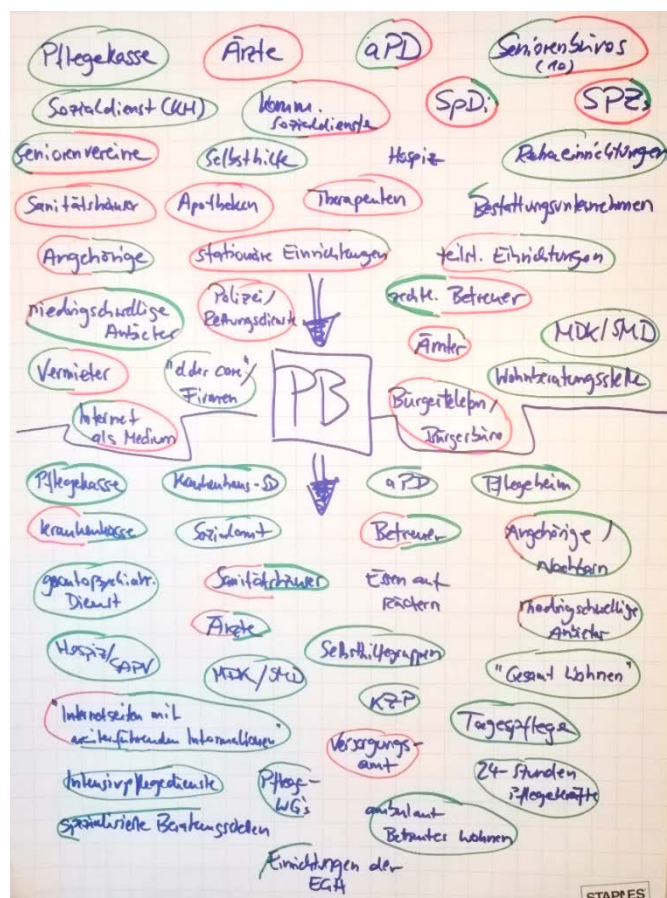 Pflegekasse
Ärzte
aPD
Seniorenbüros
(10)
Sozialdienst (KH)
Komm.
Sozialdienste
SpDi
SPZs
Seniorenvereine
Selbsthilfe
Hospiz
Rehaeinrichtungen
Sanitätshäuser
Apotheken
Therapeuten
Bestattungsunternehmen
Angehörige
stationäre Einrichtungen
teilst. Einrichtungen
niedrigschwellige
Anbieter
Polizei/
Rettungsdienste
rechtl. Betreuer
Ämter
MDK/SMD
Vermieter
"elder care"/
Firmen
PB
Wohnberatungsstelle
Internet
als Medium
Bürgertelefon/
Bürgerbüro
Pflegekasse
Krankenhaus-SD
aPD
Pflegeheim
Krankenkasse
Sozialamt
Betreuer
Angehörige/
Nachbarn
gerontopsychiatr.
Dienst
Sanitätshäuser
Essen auf
Rädern
niedrigschwellige
Anbieter
Ärzte
Hospiz/
SAPV
MDK/SMD
Selbsthilfegruppen
"Gesamt Wohnen"
"Internetseiten mit
weiterführenden Informationen"
KZP
Versorgungs-
amt
Tagespflege
Intensivpflegedienste
Pflege-
WG's
24-Stunden
Pflegekräfte
spezialisierte Beratungsstellen
ambulant
Betreutes Wohnen
Einrichtungen der
EGH
STAPLES